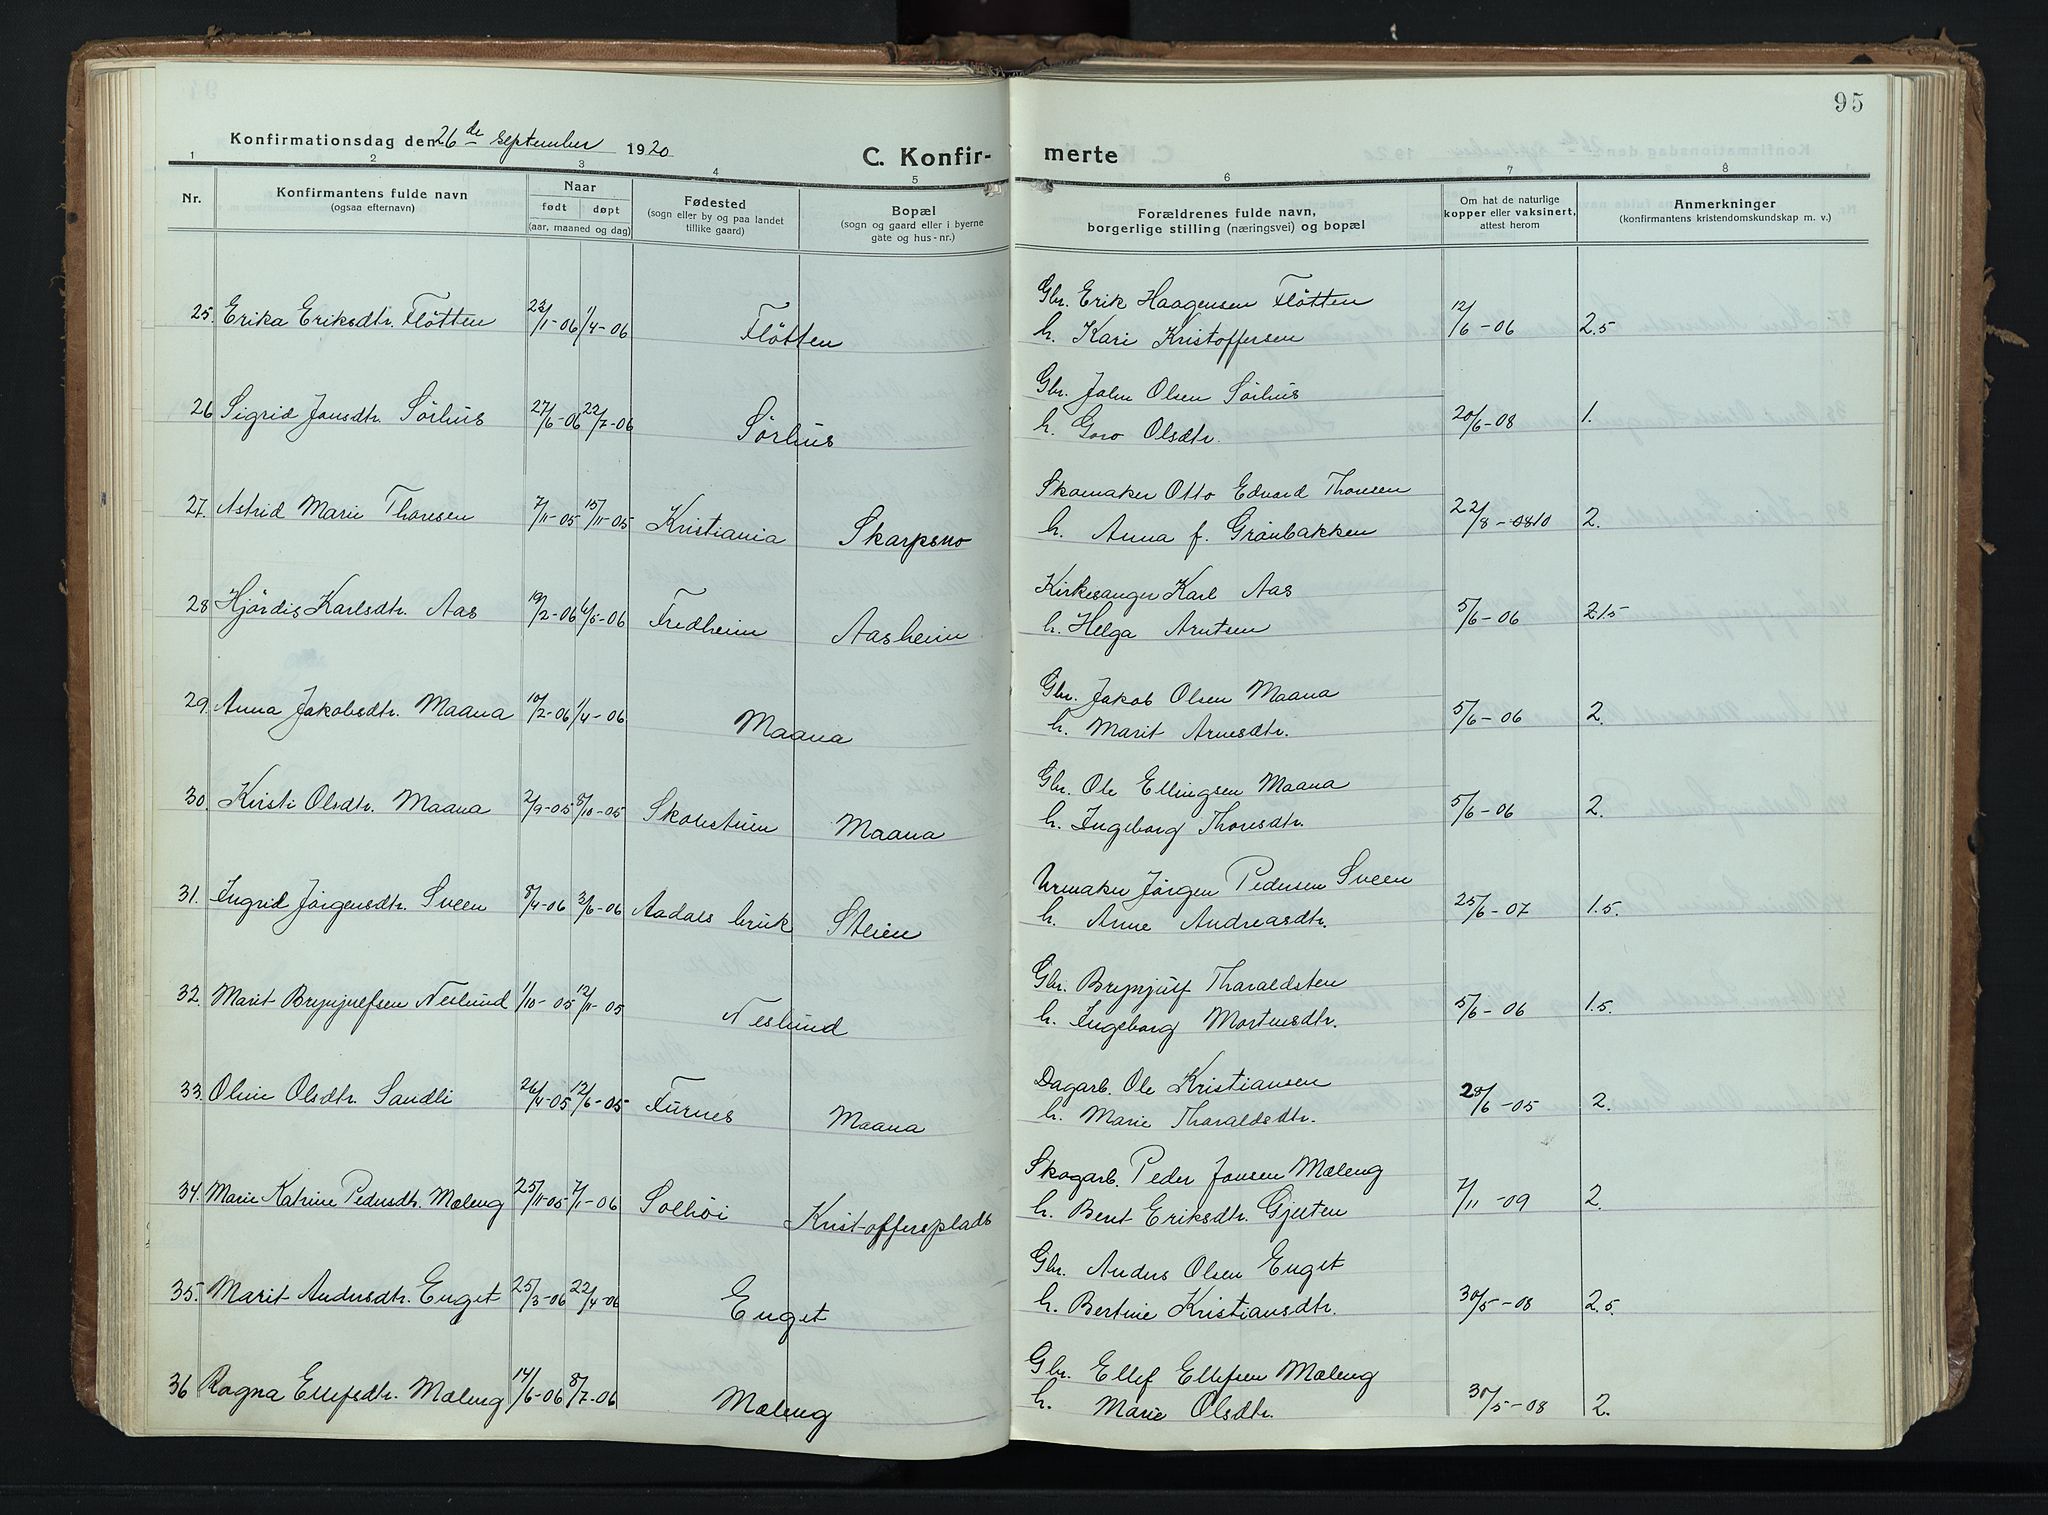 95
Konfirmationsdag den 26de september 1920
C. Konfir- merte
1 2 3 4 5 6 7 8
Nr.
Konfirmantens fulde navn
(ogsaa efternavn)
Naar
født døpt
(aar, maaned og dag)
Fødested
(sogn eller by og paa landet
tillike gaard)
Bopæl
(sogn og gaard eller i byerne
gate og hus-nr.)
Forældrenes fulde navn,
borgerlige stilling (næringsvei) og bopæl
Om hat de naturlige
kopper eller vaksinert,
attest herom
Anmerkninger
(konfirmantens kristendomskundskap m. v.)
25. Erika Eriksdtr. Fløtten 23/1-06 1/4-06 Fløtten Gbr. Erik Haagensen Fløtten 12/6-06 2.5
h. Kari Kristoffersen
26 Sigrid Jonsdtr. Sørhus 27/6-06 22/7-06 Sørhus Gbr. John Olsen Sørhus 20/6-08 1.
h. Goro Olsdtr.
27. Astrid Marie Thoresen 7/11-05 15/11-05 Kristiania Skarpsno Skomaker Otto Edvard Thoresen 22/8-0810 2.
h. Anna f. Grønbakken
28 Hjørdis Karlsdtr. Aas 19/2-06 6/5-06 Fredheim Aasheim Kirkesanger Karl Aas 5/6-06 21.5
h. Helga Arntsen
29. Anna Jakobsdtr. Maana 10/2-06 1/4-06 Maana Gbr. Jakob Olsen Maana 5/6-06 2.
h. Marit Arnesdtr.
30. Kirsti Olsdtr. Maana 2/9-05 8/10-05 Maana Gbr. Ole Ellingsen Maana 5/6-06 2.
h. Ingeborg Thoresdtr.
31. Ingrid Jørgensdtr. Sveen 8/4-06 3/6-06 Aadals bruk Steien Urmaker Jørgen Pedersen Sveen 25/6-07 1.5.
h. Anne Andreasdtr.
32. Marit Brynjulfsen Neslund 1/10-05 12/11-05 Neslund Gbr. Brynjulf Tharaldsten 5/6-06 1.5.
h. Ingeborg Mortensdtr.
33. Oline Olsdtr. Sandli 26/4-05 12/6-05 Furnes Maana Dagarb. Ole Kristiansen 28/6-05 2.
h. Marie Tharaldsdtr.
34. Marie Katrine Pedersdtr. Mæleng 25/11-05 7/1-06 Solhøi Kristoffersplads Skogarb. Peder Jonsen Mæleng 7/11-09 2.
h. Berit Eriksdtr. Gjelten
35. Marit Andersdtr. Enget 25/3-06 22/4-06 Enget Gbr. Anders Olsen Enget 30/5-08 2.5.
h. Bertine Kristiansdtr.
36 Ragna Ellefsdtr. Mæleng 14/6-06 8/7-06 Mæleng Gbr. Ellef Ellefsen Mæleng 30/5-08 2.
h. Marie Olsdtr.